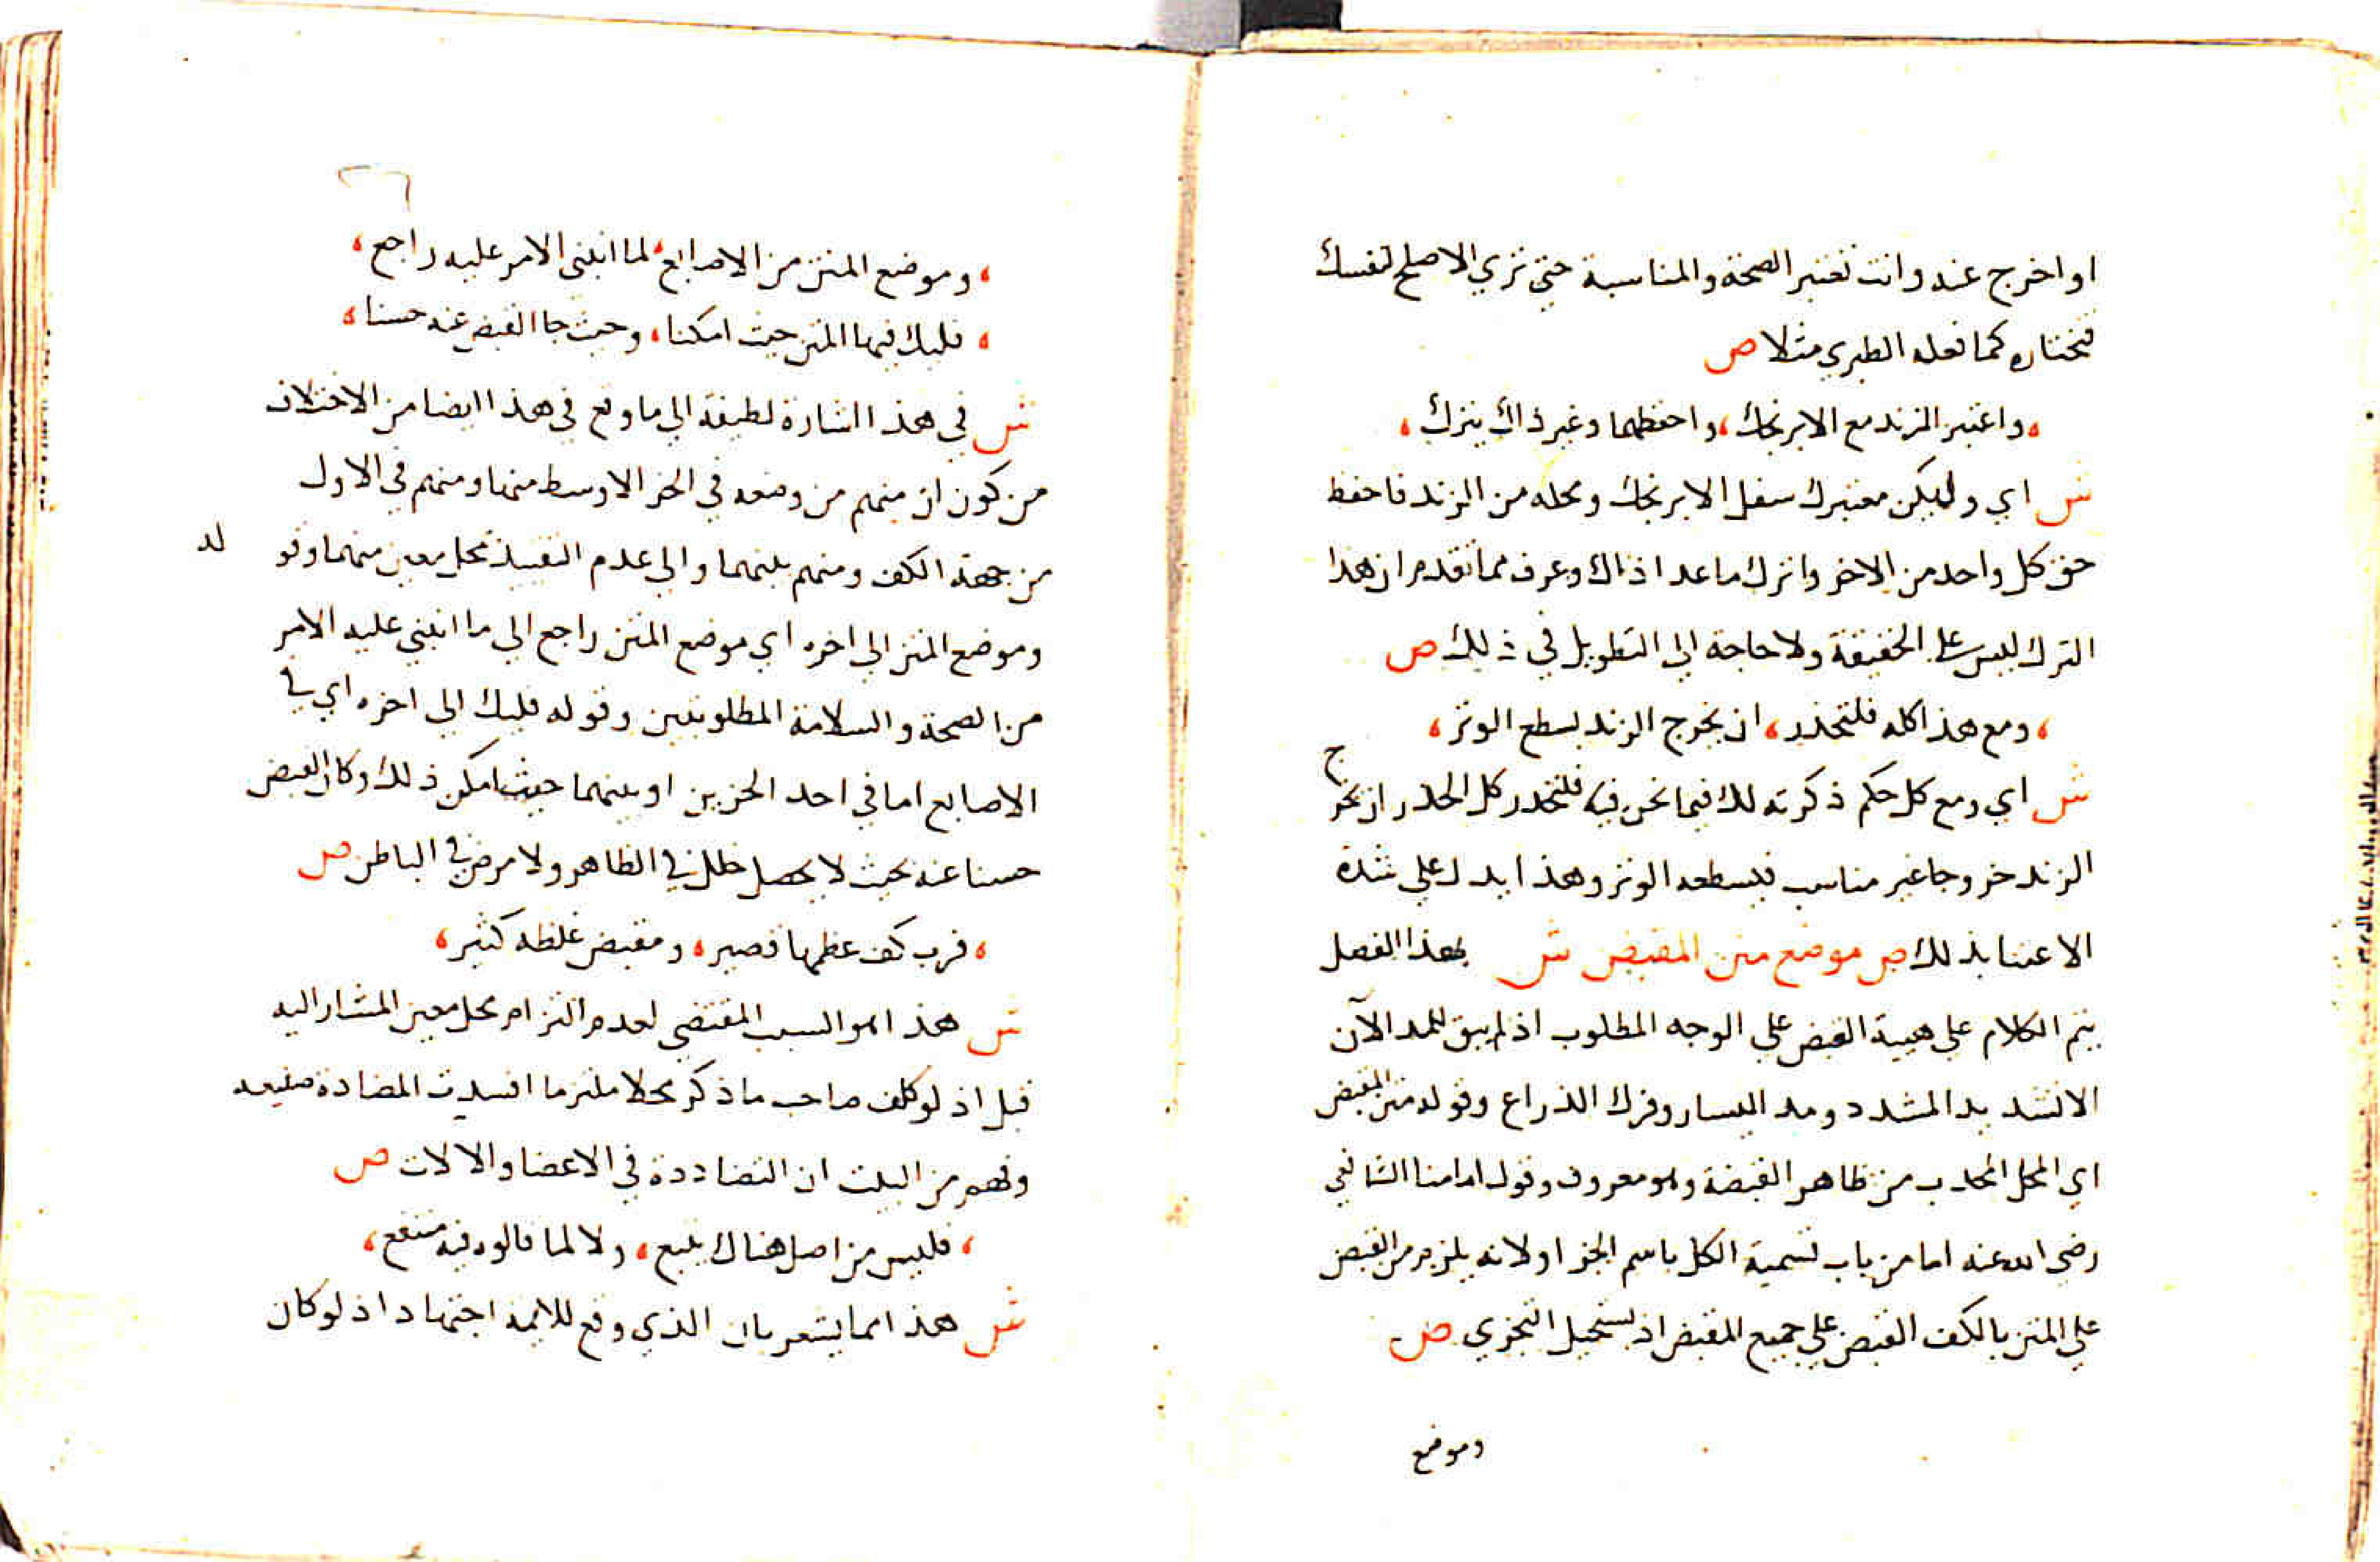 او اخرج عنه وانت تعتبر الصحة والمناسبة حتي تري الاصلح لنفسك
فتختاره كما فعله الطبري مثلا ص
، واعتبر الزند مع الابرنجك ، واحفظهما وغير ذاك يترك ،
ش اي وليكن معتبرك سفل الابرنجك ومحله من الزند فاحفظ
حق كل واحد من الاخر واترك ما عدا ذاك وعرف مما تقدم ان هذا
الترك ليس علي الحقيقة ولا حاجة الي التطويل في ذلك ص
، ومع هذا كله فلتحذر ، ان يخرج الزند بسطع الوتر ،
ش اي ومع كل حكم ذكرته لك فيما نحن فيه فلتحذر كل الحذر ان يخرج
الزند خروجا غير مناسب فيسطعه الوتر وهذا يدل علي شدة
الاعتنا بذلك ص موضع متن المقبض ش بهذا الفصل
يتم الكلام علي هيية القبض علي الوجه المطلوب اذ لم يبق للمد الآن
الا تشديد المشدد ومد اليسار وفرك الذراع وقوله متن المقبض
اي المحل المحدب من ظاهر القبضة وهو معروف وقول امامنا الشافعي
رضي الله عنه اما من باب تسمية الكل باسم الجز او لانه يلزم من القبض
علي المتن بالكف القبض علي جميع المقبض اذ يستحيل التجزي ص
وموضع
، وموضع المتن من الاصابع ، لما انبنى الامر عليه راجع ،
، فليك فيها المتن حيث امكنا ، وحيث جا القبض عنه حسنا ،
ش في هذا اشارة لطيفة الي ما وقع في هذا ايضا من الاختلاف
من كون ان منهم من وضعه في الجز الاوسط منها ومنهم في الاول
من جهة الكف ومنهم بينهما والي عدم التقييد بمحل معين منهما وقو له
وموضع المتن الي اخره اي موضع المتن راجع الي ما انبني عليه الامر
من الصحة والسلامة المطلوبتين وقوله فليك الي اخره اي في
الاصابع اما في احد الجزين او بينهما حيث امكن ذلك وكان القبض
حسنا عنه بحيث لا يحصل خلل في الظاهر ولا مرض في الباطن ص
، فرب كف عظمها قصير ، ومقبض غلظه كثير ،
ش هذا هو السبب المقتضي لعدم التزام محل معين المشار اليه
قبل اذ لو كلف صاحب ما ذكر محلا ملتزما افسدت المضادة صنيعه
وفهم من البيت ان التضاددة في الاعضا والالات ص
، فليس من اصل هناك يتبع ، ولا لما قالوه فيه متسع ،
ش هذا مما يشعر بان الذي وقع للايمة اجتهاد اذ لو كان